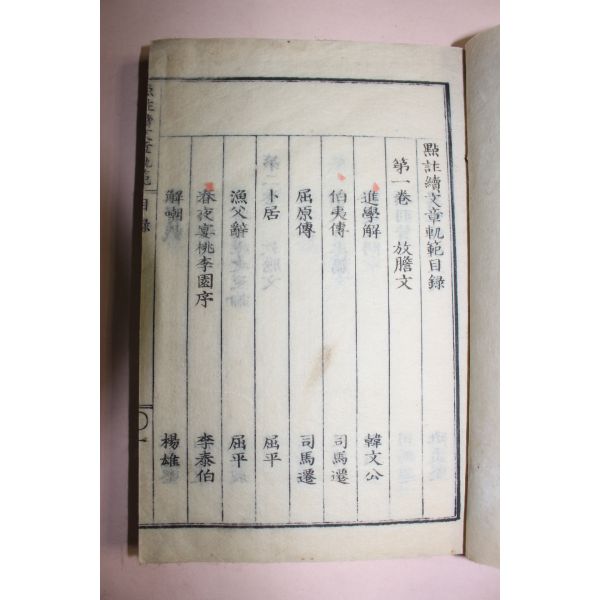 點註續文章軌範目錄
第一卷 放膽文
進學解 韓文公
伯夷傳 司馬遷
屈原傳 司馬遷
卜居 屈平
漁父辭 屈平
春夜宴桃李園序 李泰伯
解嘲 楊雄
點註續文章軌範 目錄 一